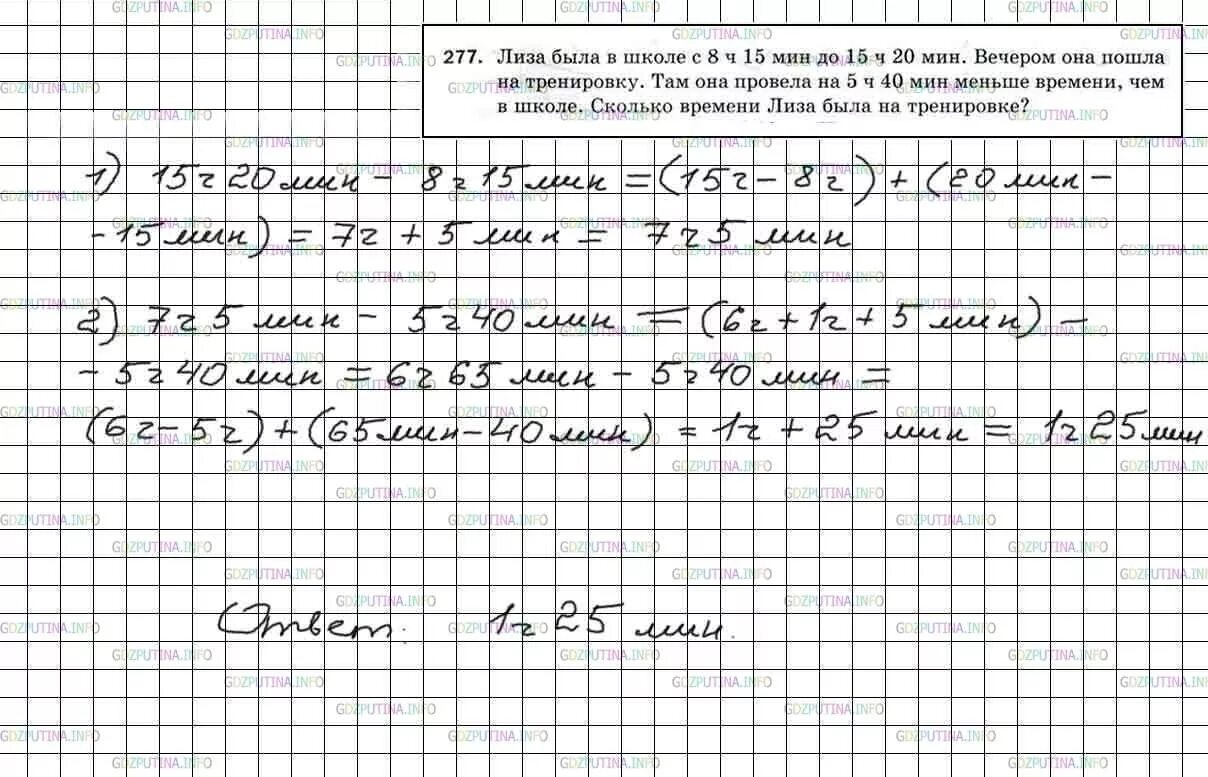 277. Лиза была в школе с 8 ч 15 мин до 15 ч 20 мин. Вечером она пошла
на тренировку. Там она провела на 5 ч 40 мин меньше времени, чем
в школе. Сколько времени Лиза была на тренировке?
1) 15ч 20 мин - 8ч 15 мин = (15ч - 8ч) + (20 мин -
- 15 мин) = 7ч + 5 мин = 7ч 5 мин
2) 7ч 5 мин - 5ч 40 мин = (6ч + 1ч + 5 мин) -
- 5ч 40 мин = 6ч 65 мин - 5ч 40 мин =
(6ч - 5ч) + (65 мин - 40 мин) = 1ч + 25 мин = 1ч 25 мин
Ответ: 1ч 25 мин.
GDZPUTINA.INFO